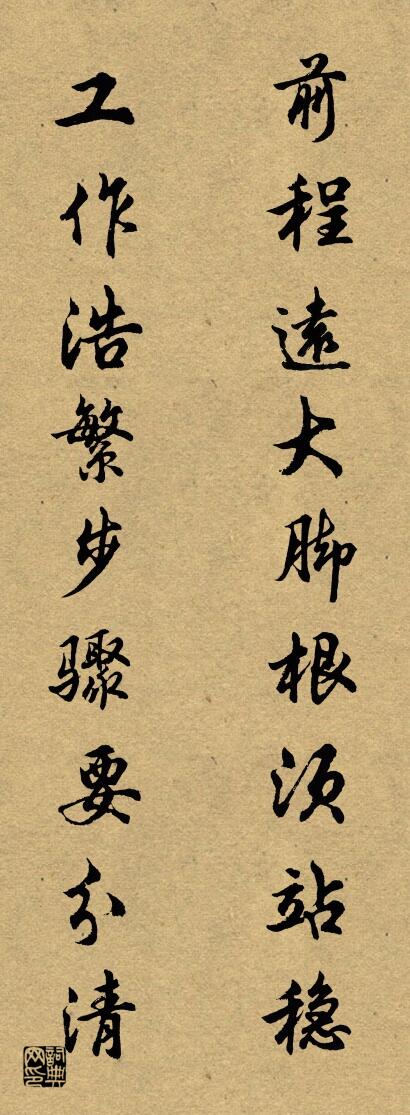 前程遠大脚根须站稳
工作浩繁步骤要分清